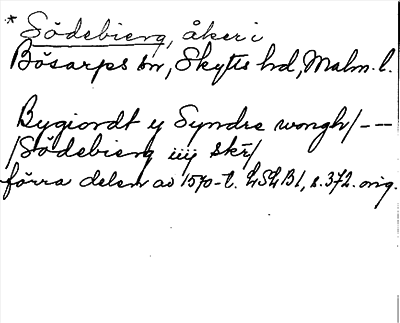 * Södebierg, åker i
Bösarps sn, Skytts hd, Malm. l.
Bygiordt y Syndre wongh/ - - -
/Södebierg iiij skr/
förra delen av 1570-t. LSLB1, s. 372. orig.